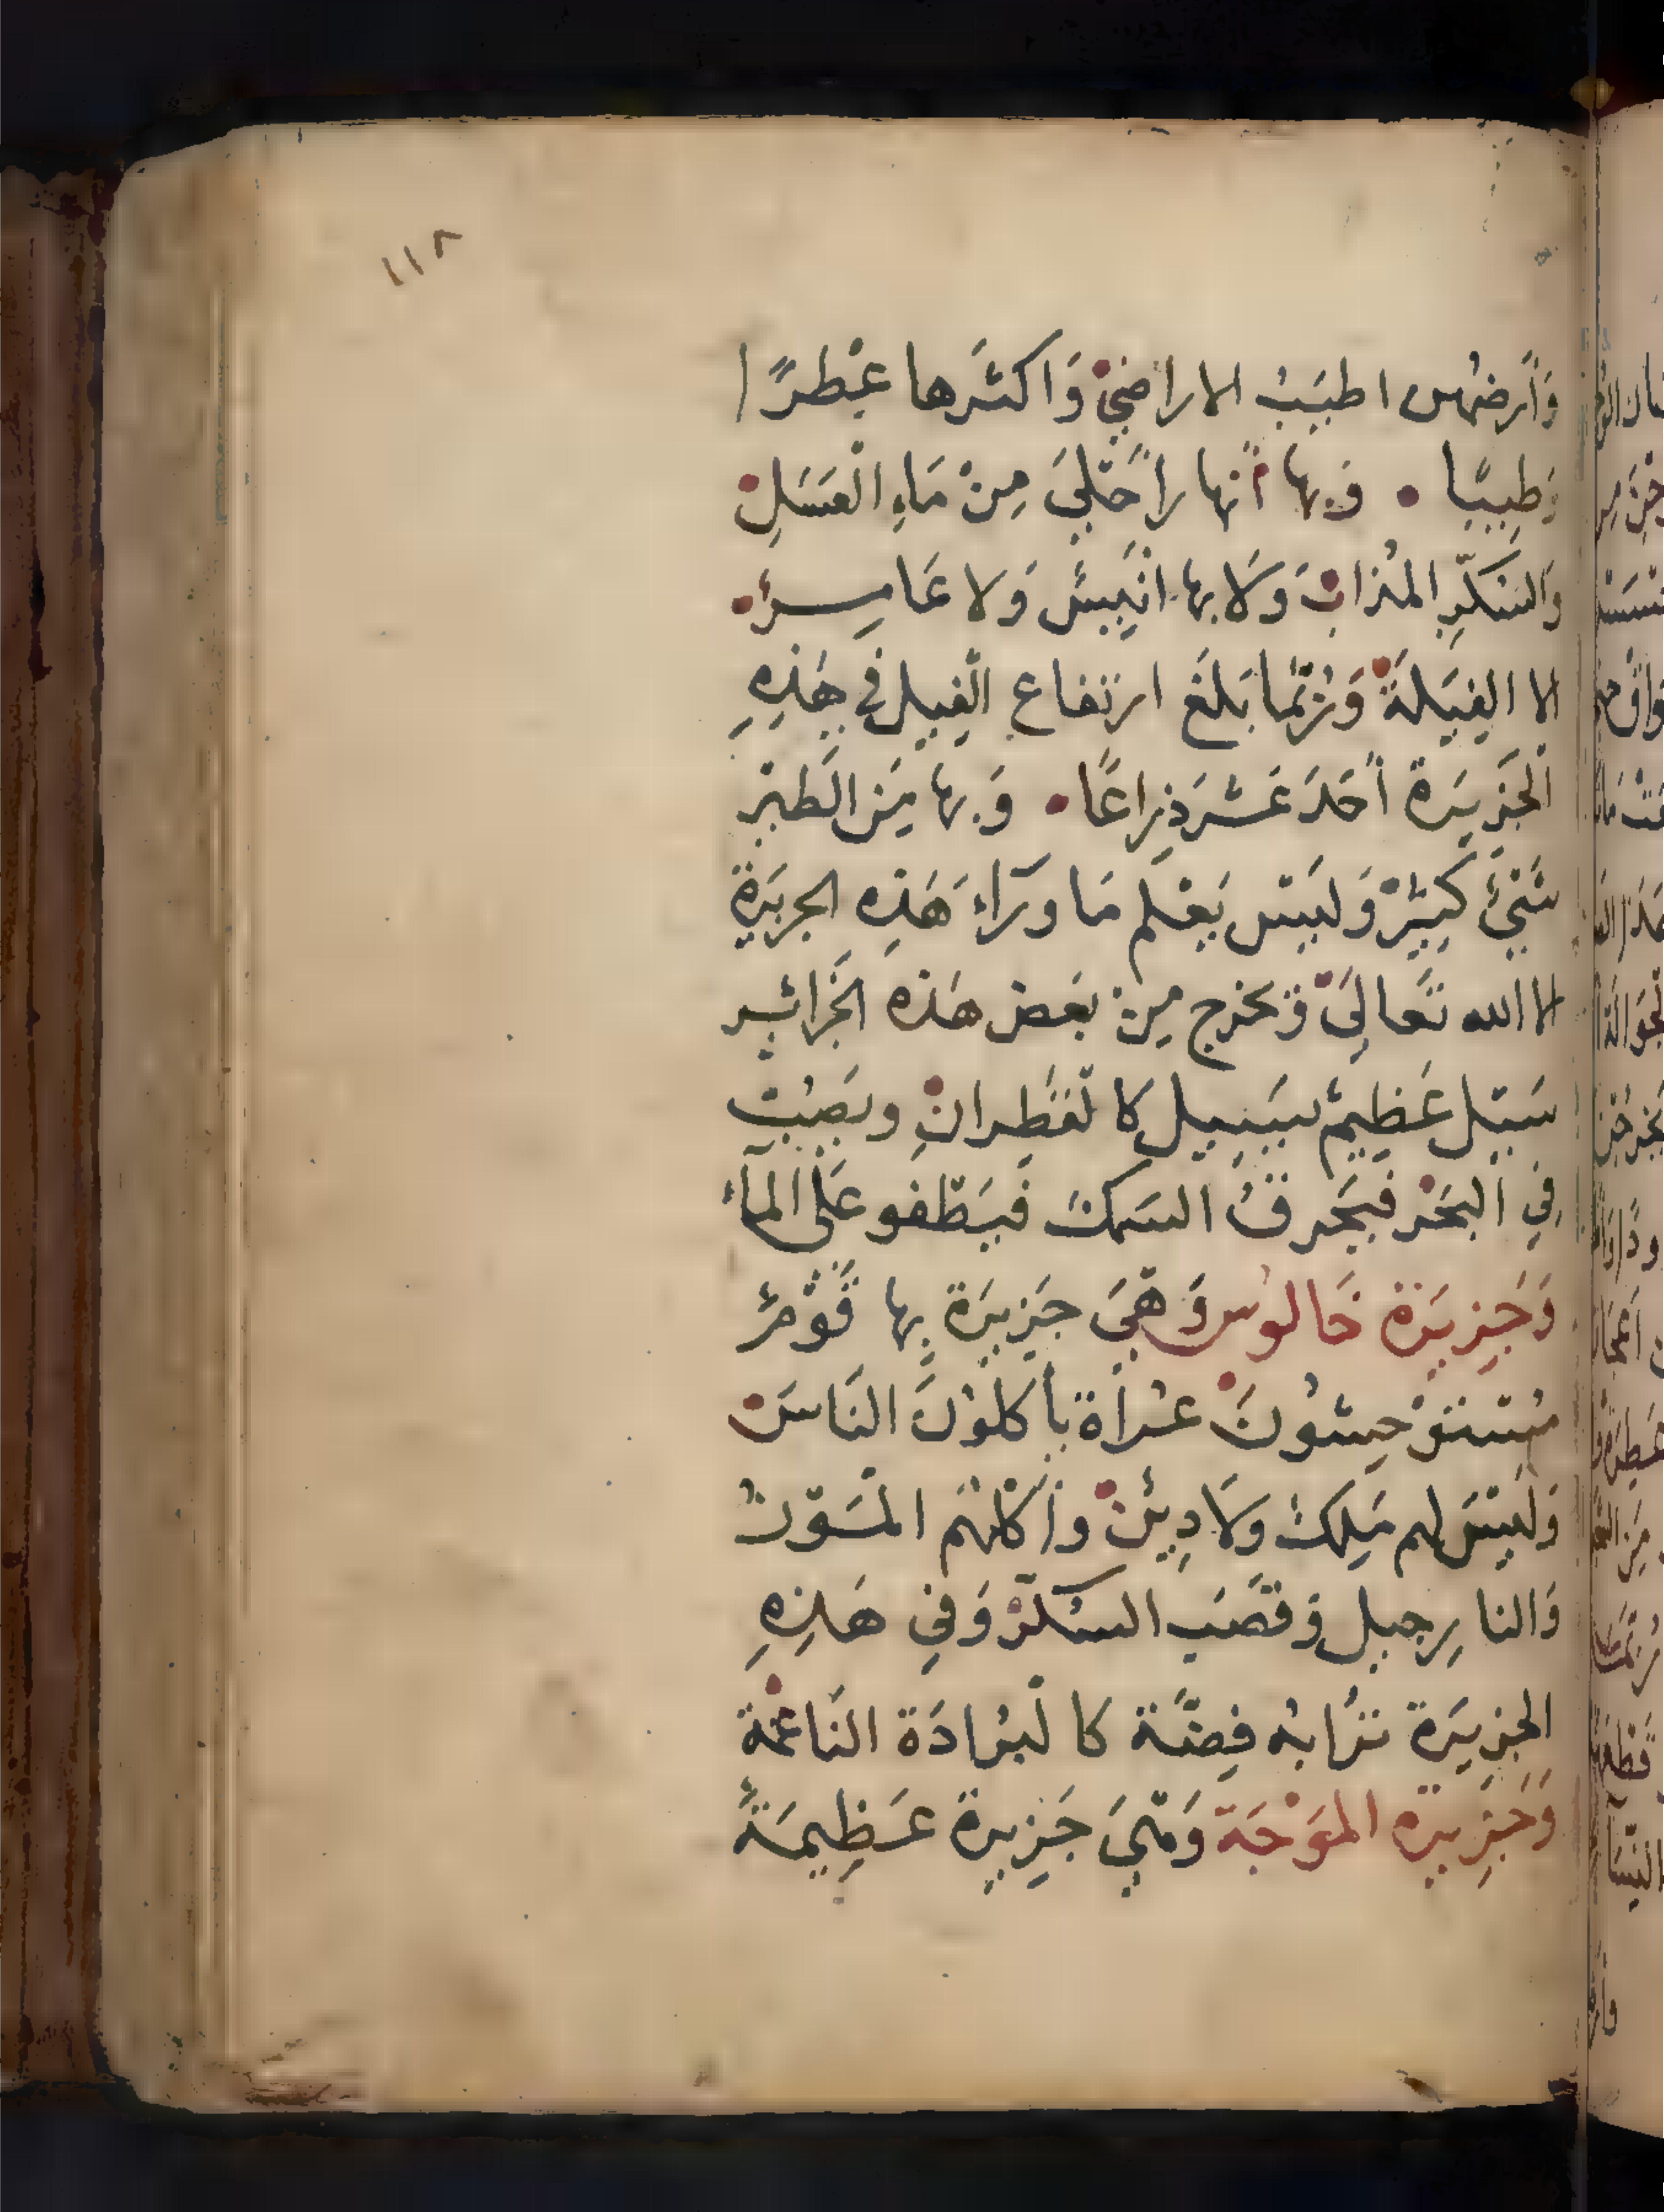 ١١٨
وَأَرضهُم اطيَبُ الاراضيْ وَاكثَرها عِطرًا
وَطِيبًا • وَبها أنهارًا حَلىَ مِنْ مَاءِ العَسَلِ
وَالسَكّرِ المُذابْ وَلا بها انيِسٌ وَلا عَامِرٌ
الا الفِيَلةَ وَرُبّما بَلغَ ارتفاع الفِيل في هَذِهِ
الجَزِيرَة أحَدَ عَشَرَ ذِراعًا • وَبها مِنَ الطَير
شَيْئ كِثيرْ وَلَيس يَعْلم مَا ورَاءَ هَذِه الجزيرَة
الا الله تَعالىَ وَيخرج مِن بَعض هَذه الجَزائِر
سَيل عَظِيمٌ يَسِيل كالقَطِرانِ ويَصُبّ
فِي البَحْر فَيَحرقُ السَمكَ فَيَطفو عَلى المآء
وَجَزِيرَة حَالوُس وَهيَ جَزيرَة بِها قَوْمٌ
مُستَوْحِشُونَ عُراَة يأكلوُنَ النَاسَ
وَلَيسَ لهم مَلِكٌ وَلا دِينْ وأكلهُم المَوْز
وَالنارِجيل وَقصَب السُكّرْ وَفي هَذِهِ
الجزِيرَة تُرَابهُ فِضّة كالبُرادَة النَاعمة
وَجَزِيرة الموَجَة وَهيَ جَزِيرة عَظِيمَةٌ